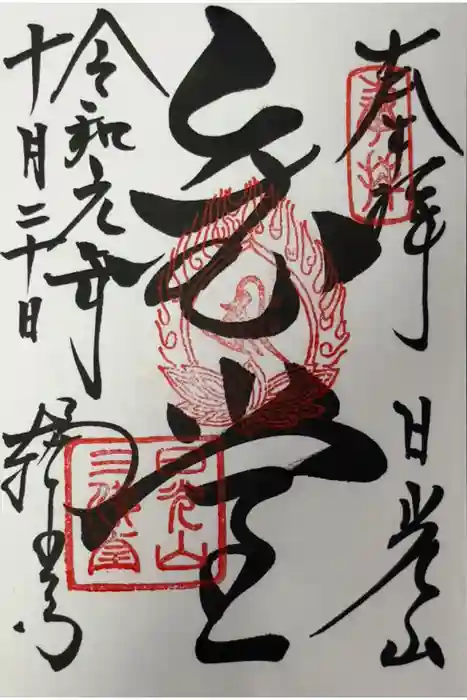 奉拝 日光山
堂
令和元年
十月二十日
輪王寺
日光山
三佛堂